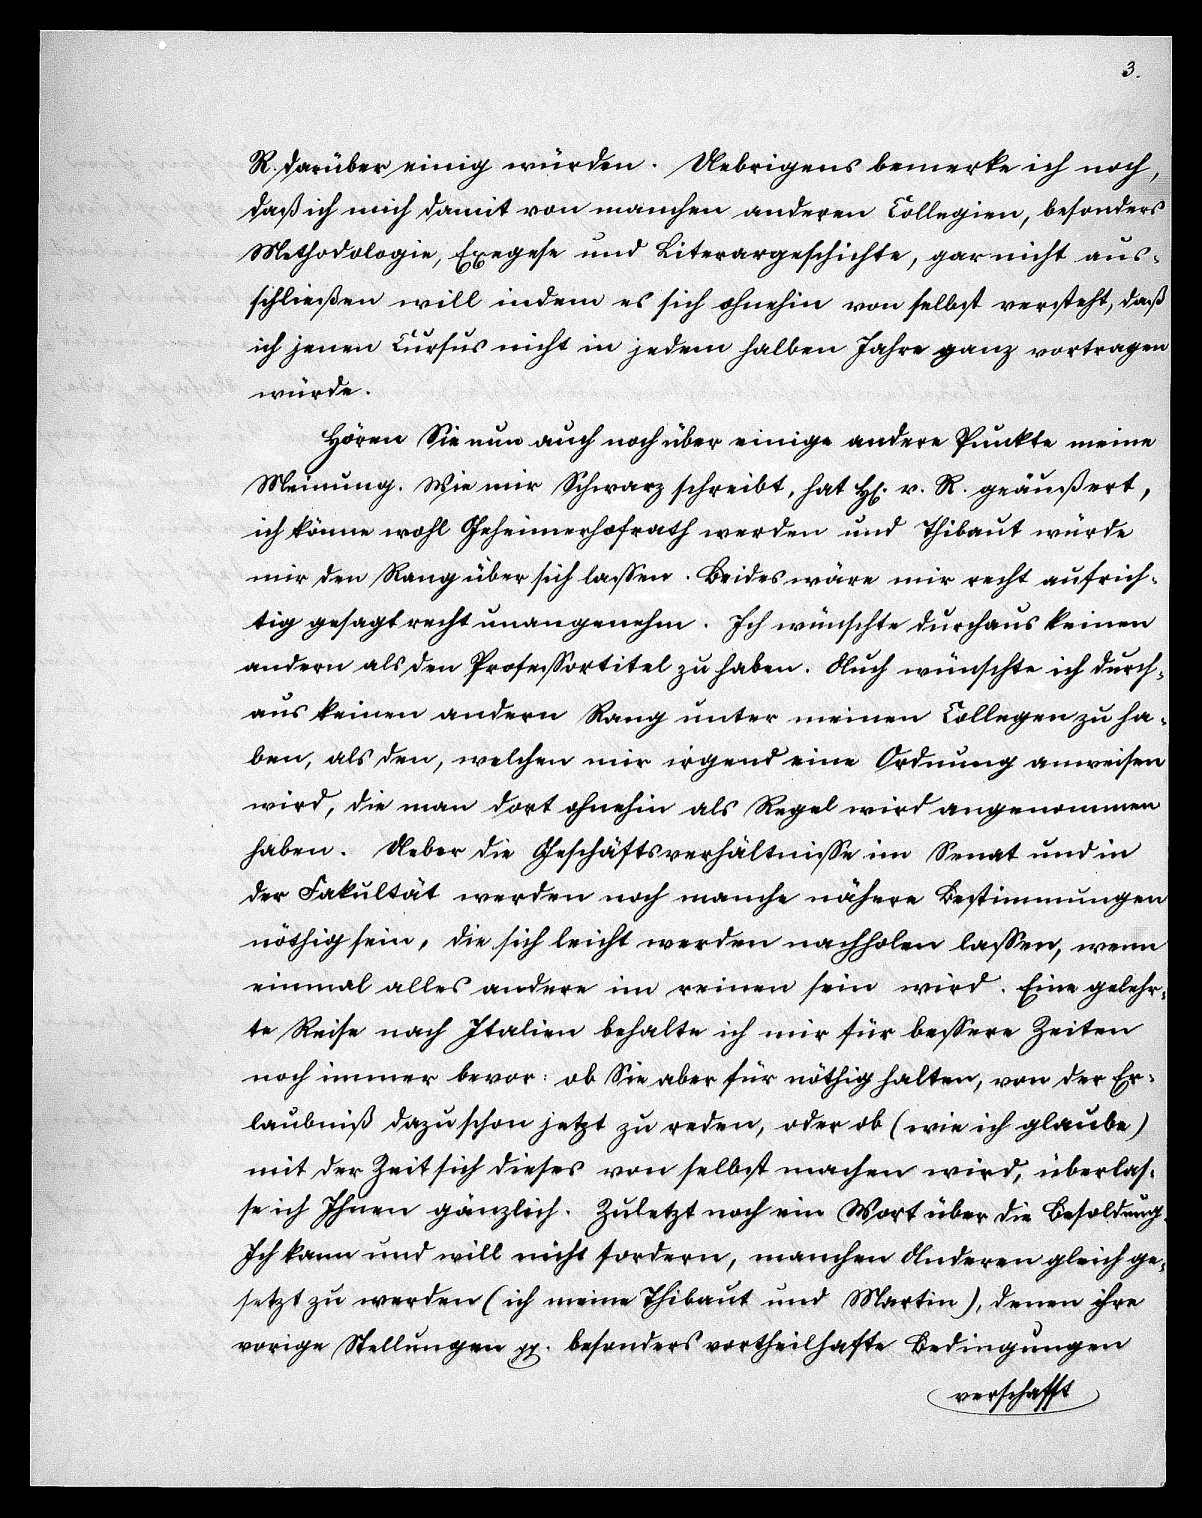 3.
R. darüber einig würden. Uebrigens bemerke ich noch,
daß ich mich damit von manchen anderen Collegien, besonders
Methodologie, Exegese und Literargeschichte, gar nicht aus-
schließen will indem es sich ohnehin von selbst versteht, daß
ich jenen Cursus nicht in jedem halben Jahre ganz vortragen
würde.
Hören Sie nun auch noch über einige andere Punkte meine
Meinung. Wie mir Schwarz schreibt, hat H. v. R. geäußert,
ich könne wohl Geheimerhofrath werden und Thibaut würde
mir den Rang über sich lassen. Beides wäre mir recht aufrich-
tig gesagt recht unangenehm. Ich wünschte durchaus keinen
andern als den Professortitel zu haben. Auch wünschte ich durch-
aus keinen andern Rang unter meinen Collegen zu ha-
ben, als den, welchen mir irgend eine Ordnung anweisen
wird, die man dort ohnehin als Regel wird angenommen
haben. Ueber die Geschäftsverhältnisse im Senat und in
der Fakultät werden noch manche nähere Bestimmungen
nöthig sein, die sich leicht werden nachholen lassen, wenn
einmal alles andere im reinen sein wird. Eine gelehr-
te Reise nach Italien behalte ich mir für bessere Zeiten
noch immer bevor: ob Sie aber für nöthig halten, von der Er-
laubniß dazu schon jetzt zu reden, oder ob (wie ich glaube)
mit der Zeit sich dieses von selbst machen wird, überlas-
se ich Ihnen gänzlich. Zuletzt noch ein Wort über die Besoldung.
Ich kann und will nicht fordern, manchen Anderen gleich ge-
setzt zu werden (ich meine Thibaut und Martin), denen ihre
vorige Stellungen pp. besonders vortheilhafte Bedingungen
verschafft